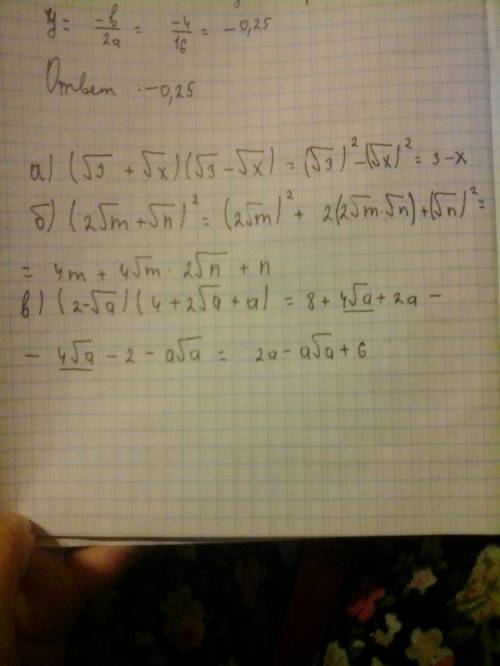 y = -b/2a = -4/16 = -0,25
Ответ: -0,25
а) (√3 + √x)(√3 - √x) = (√3)² - (√x)² = 3 - x
б) (2√m + √n)² = (2√m)² + 2(2√m·√n) + (√n)² =
= 4m + 4√m · 2√n + n
в) (2-√a)(4 + 2√a + a) = 8 + 4√a + 2a -
- 4√a - 2 - a√a = 2a - a√a + 6